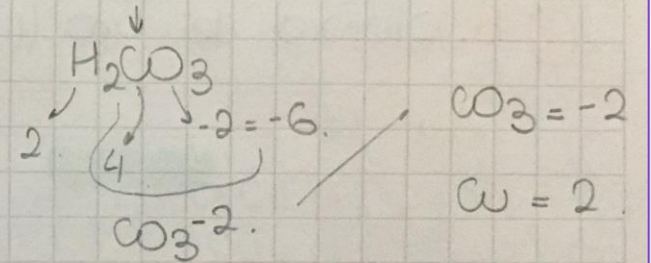 H₂CO₃
2
4
-2 = -6.
CO₃⁻².
CO₃ = -2
Cu = 2.